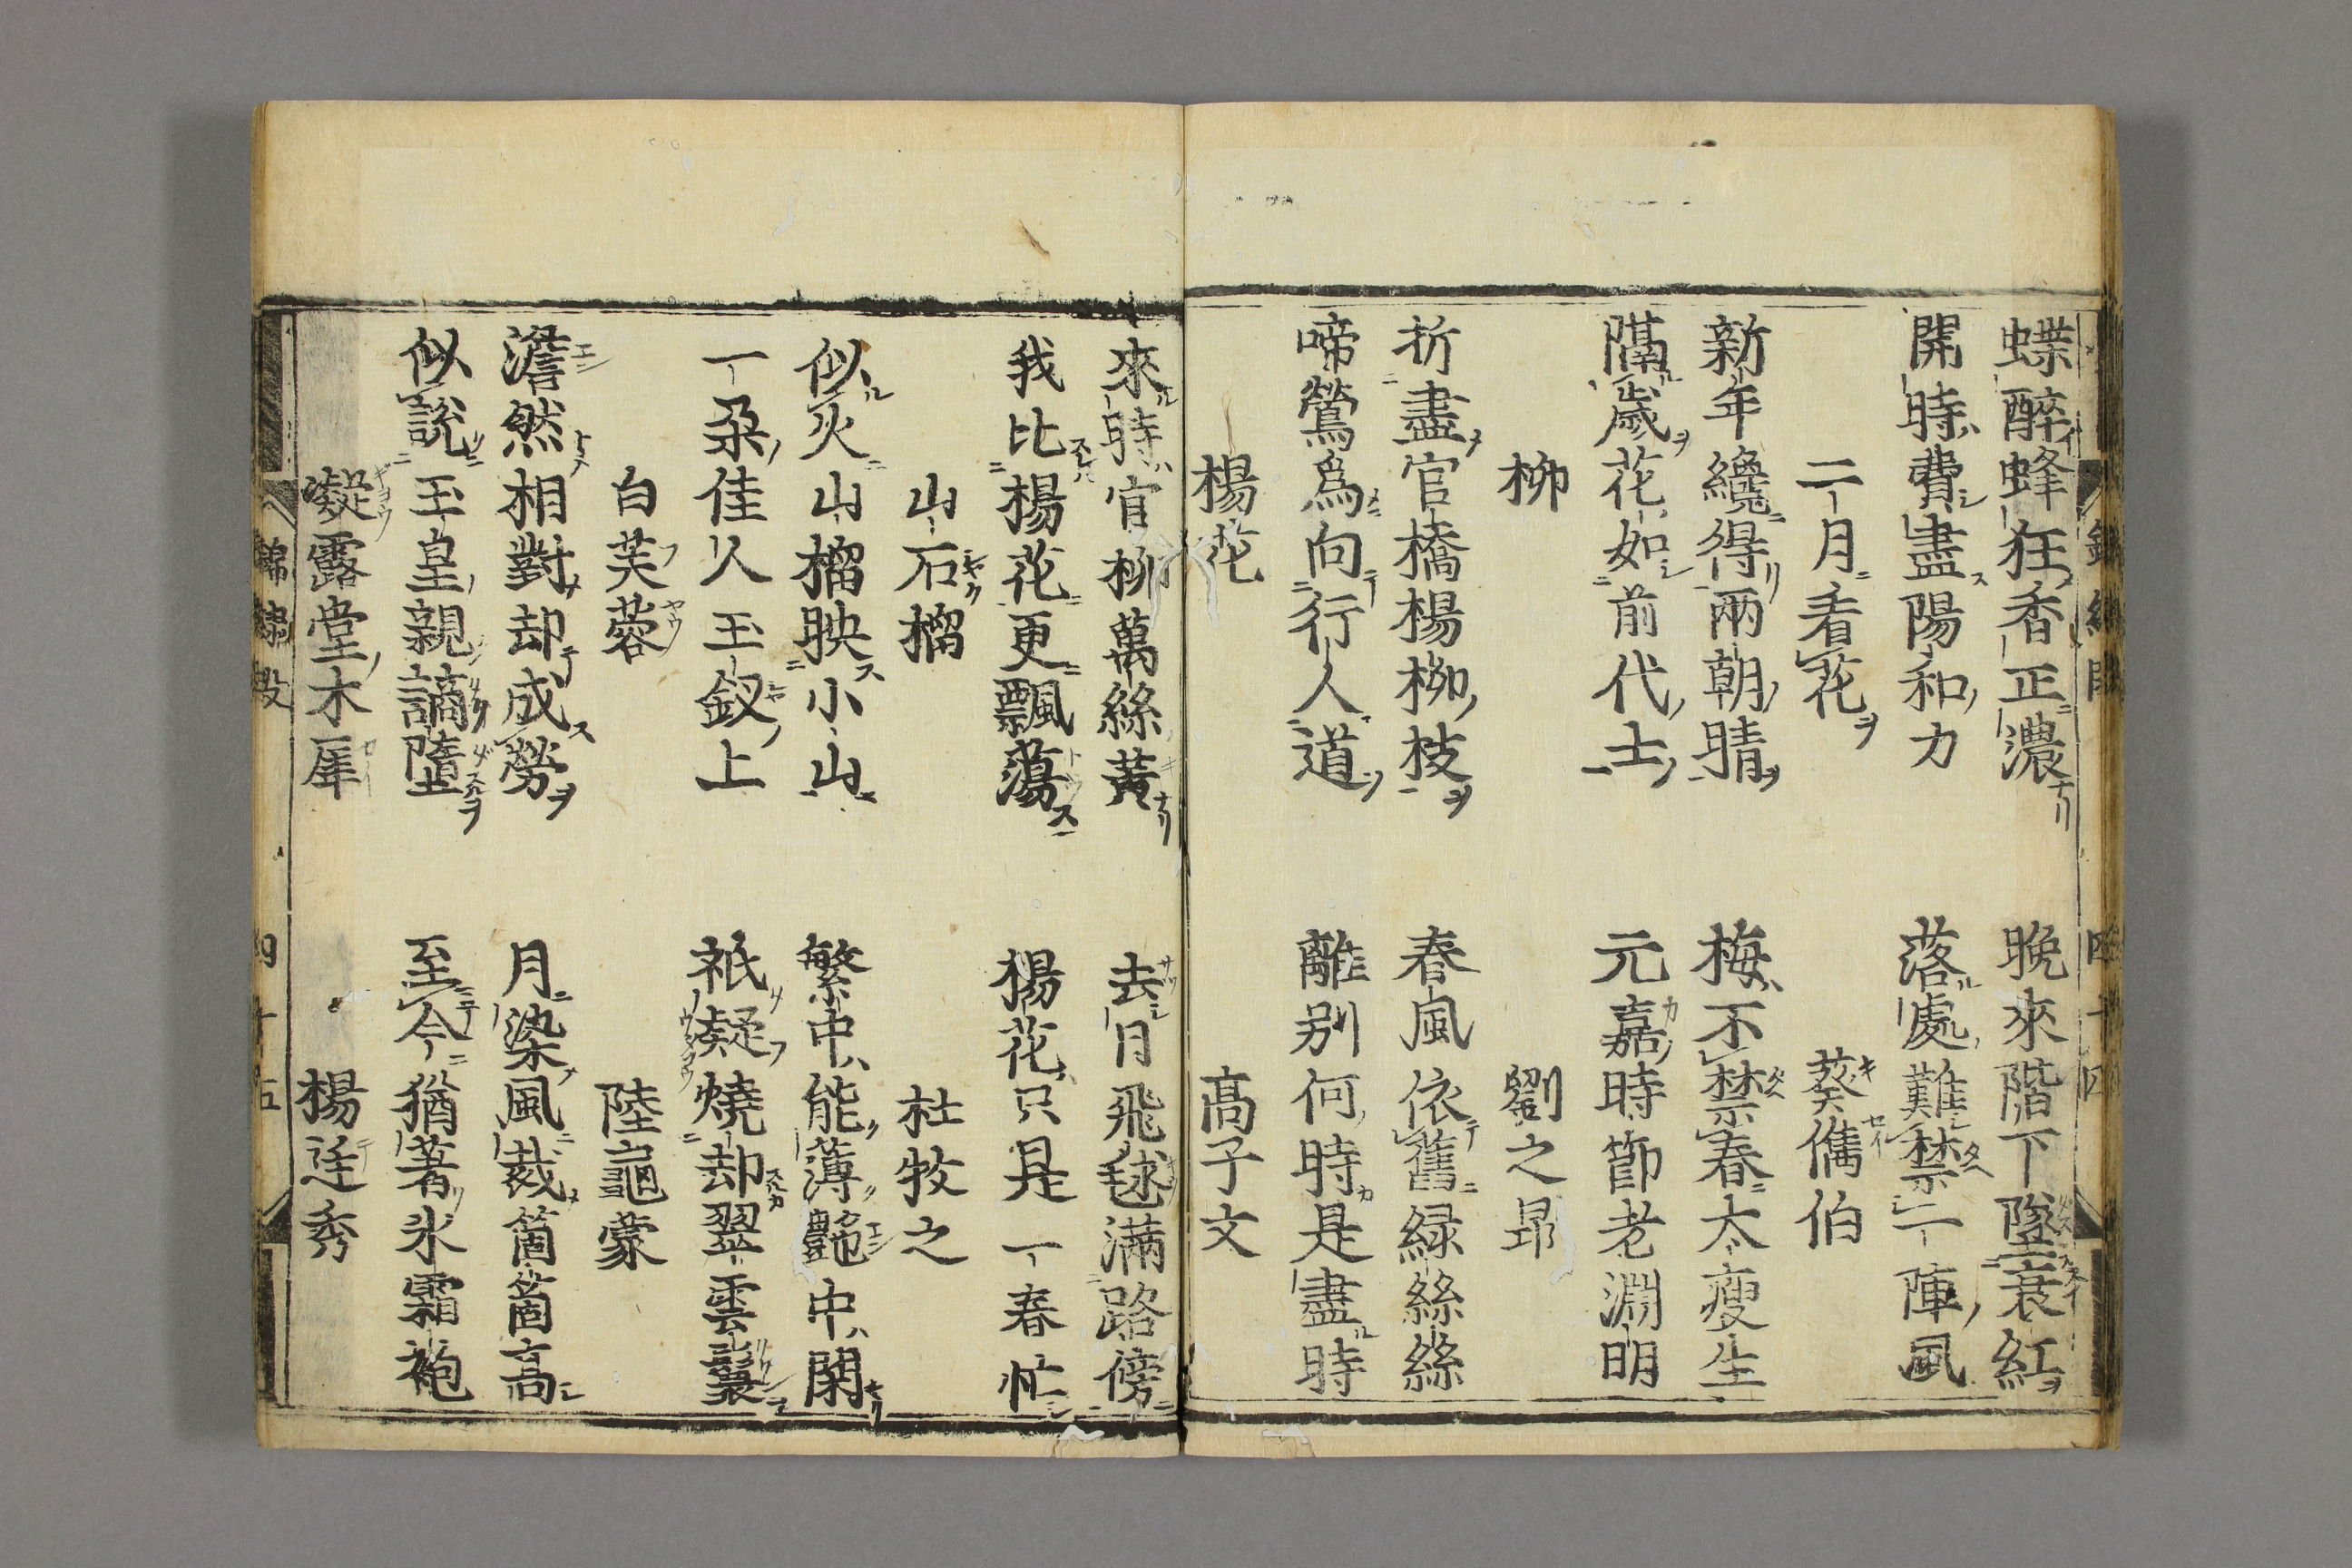 蝶醉蜂狂香正濃　晚來階下墜衰紅
開時費盡陽和力　落處難禁一陣風
二月看花　葵儁伯
新年纔得兩朝晴　梅不禁春太瘦生
隔歲花如前代士　元嘉時節老淵明
柳　劉之昻
折盡官橋楊柳枝　春風依舊緑絲絲
啼鶯爲向行人道　離别何時是盡時
楊花　髙子文
來時官柳萬絲黃　去日飛毬滿路傍
我比楊花更飄蕩　楊花只是一春忙
山石榴　杜牧之
似火山榴映小山　繁中能薄艶中閑
一朶佳人玉釵上　祇凝燒却翠雲鬟
白芙蓉　陸龜蒙
澹然相對却成勞　月染風裁箇箇高
似說玉皇親謫墮　至今猶著氷霜袍
凝露堂木犀　楊廷秀
錦繡段　四十五